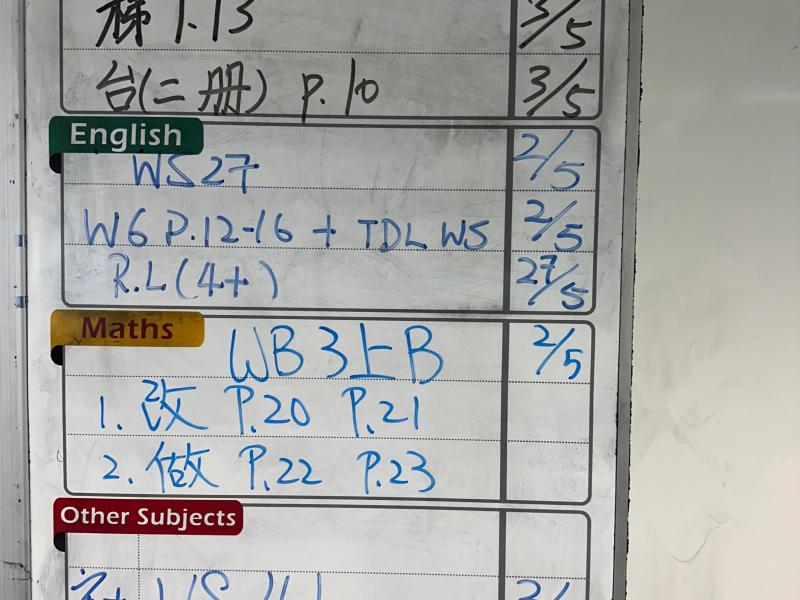 P.13 3/5
台(二册) P.10 3/5
English
WS27 2/5
W6 P.12-16 + TDL WS 2/5
R.L(4+) 27/5
Maths
WB 3上B 2/5
1. 改 P.20 P.21
2. 做 P.22 P.23
Other Subjects